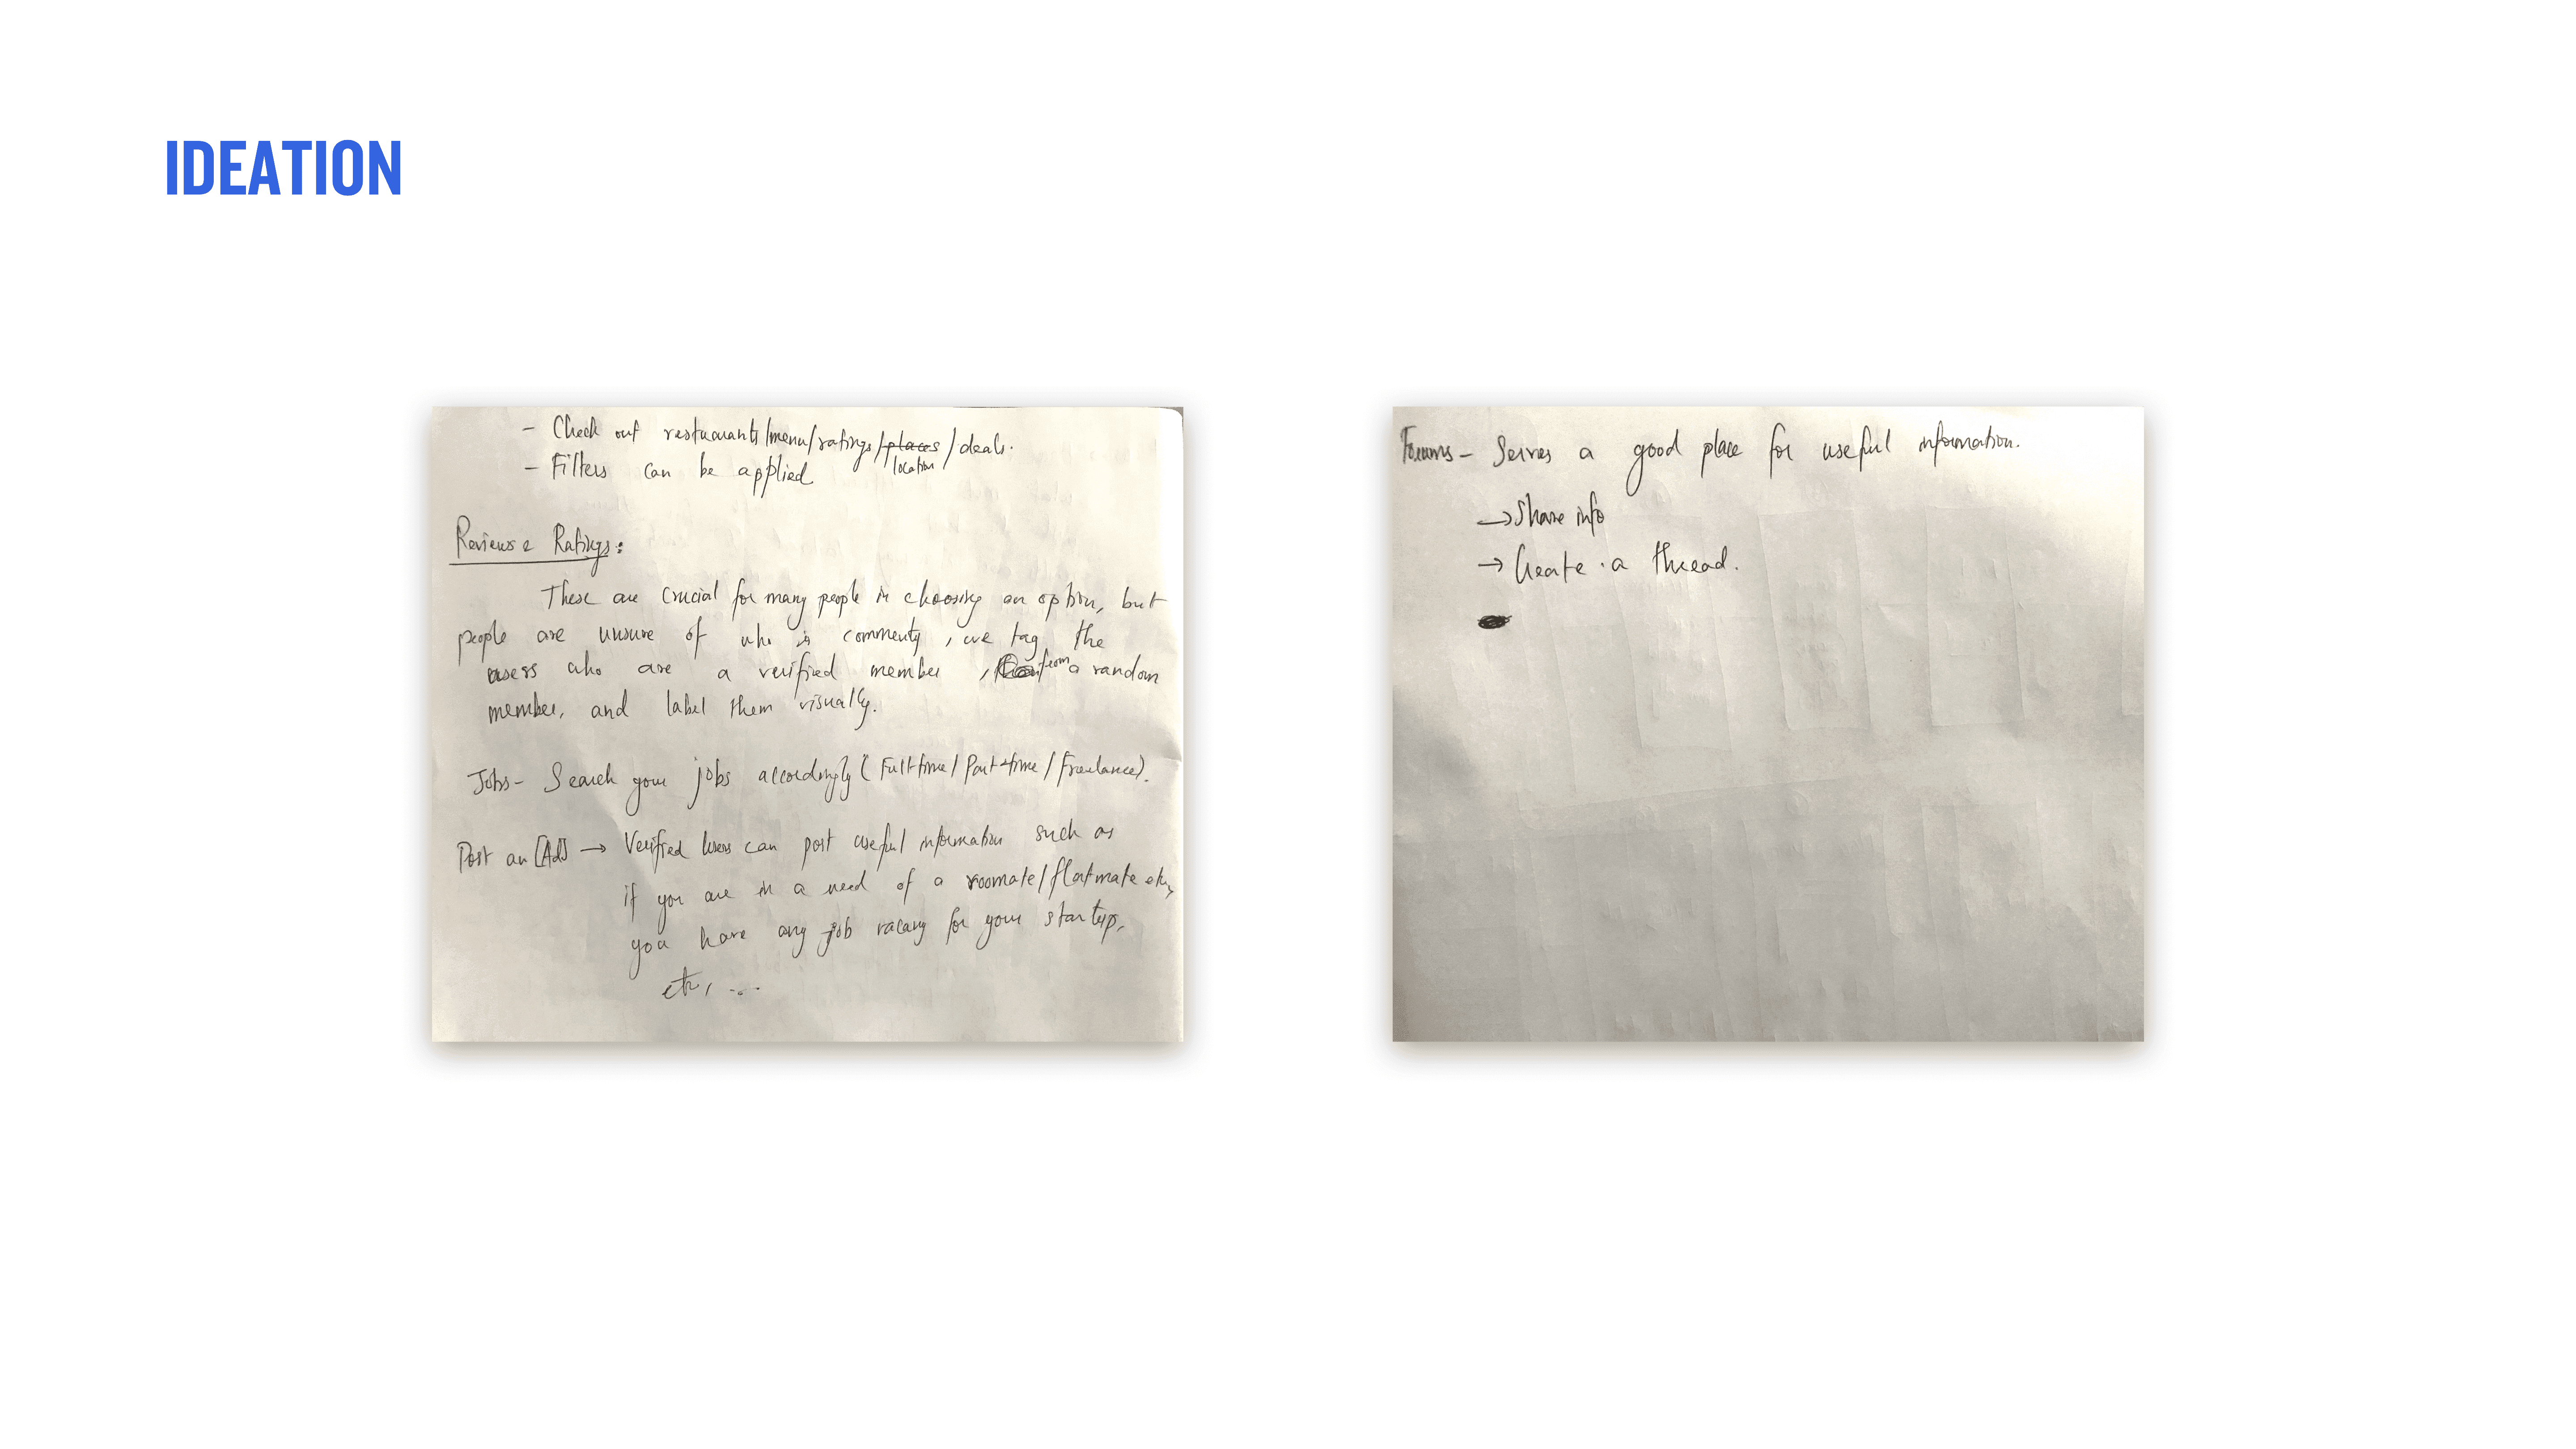 IDEATION
- Check out restaurants/menu/ratings/places/deals.
location
- Filters can be applied
Reviews & Ratings:
These are crucial for many people in choosing an option, but
people are unsure of who is commenty, we tag the
users who are a verified member, from a random
member, and label them visually.
Jobs - Search your jobs accordingly (Full-time/Part-time/Freelance).
Post an [Ad] → Verified Users can post useful information such as
if you are in a need of a roomate/flatmate etc,
you have any job vacany for your startup,
etc, ...
Forums - Serves a good place for useful information.
→ Share info
→ Create a thread.